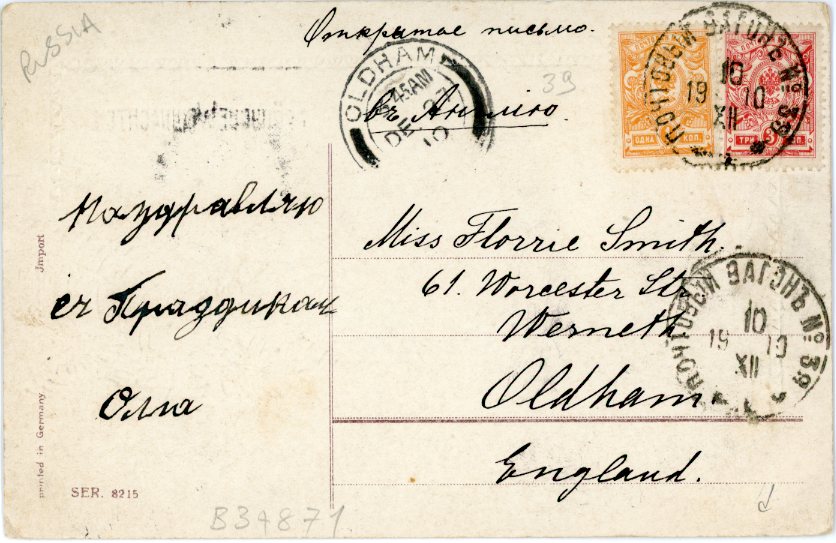 RUSSIA
Открытое письмо.
39
въ Англiю
OLDHAM
45AM
DE
10
ПОЧТОВЫЙ ВАГОНЪ № 39
10
19 10
XII
ОДНА КОП.
ТРИ КОП.
Поздравляю
съ Праздиком
Олга
Miss Florrie Smith.
61. Worcester Str
Werneth
Oldham
England.
ПОЧТОВЫЙ ВАГОНЪ № 39
10
19 10
XII
Import
printed in Germany
SER. 8215
B34871